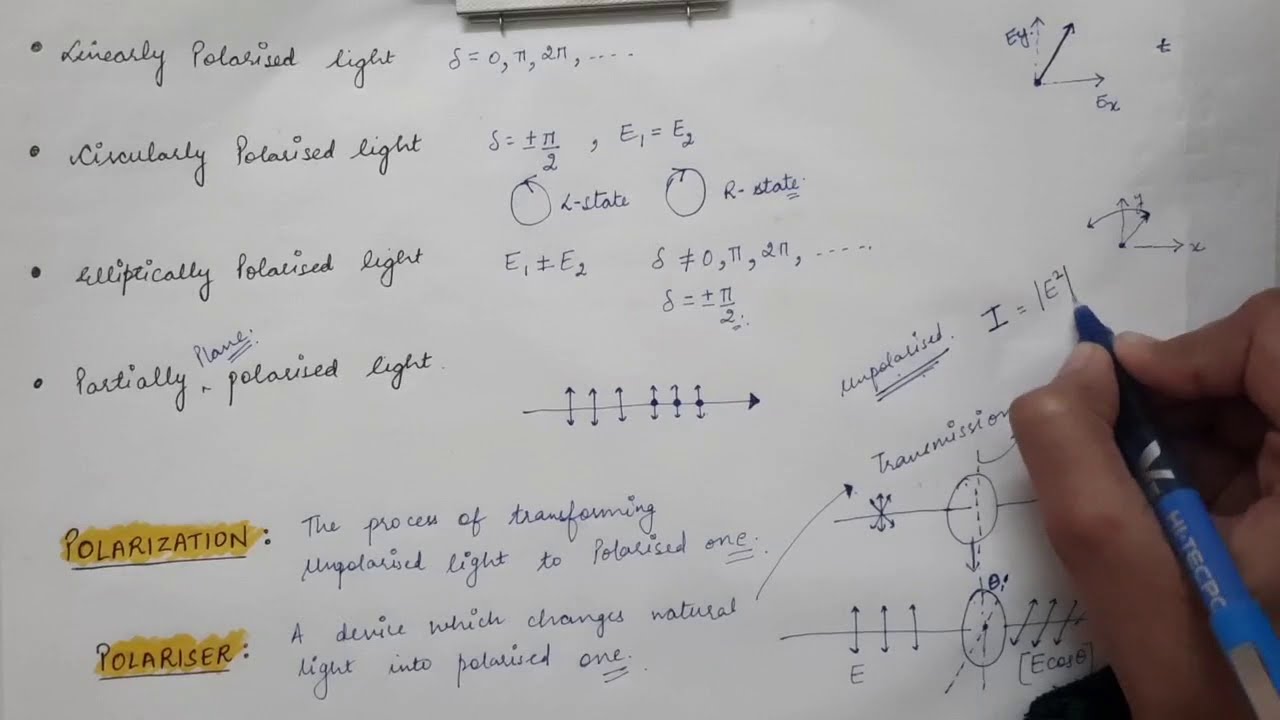 • Linearly Polarised light δ = 0, π, 2π, ....
Ey
Ex
t
• Circularly Polarised light δ = ±π/2 , E₁ = E₂
L-state
R-state
y
x
• Elliptically Polarised light E₁ ≠ E₂ δ ≠ 0, π, 2π, .....
δ = ±π/2
Plane
• Partially ‸ polarised light.
Unpolarised.
I = |E²|
Transmission
POLARIZATION : The process of transforming
unpolarised light to Polarised one.
POLARISER : A device which changes natural
light into polarised one.
θ
E
[E cos θ]
HI-TECPO